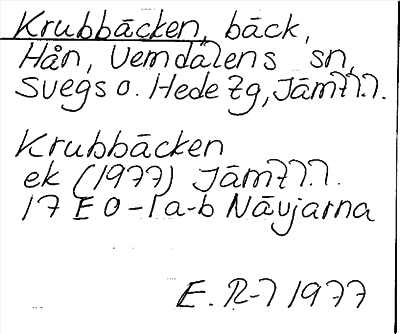 Krubbäcken, bäck,
Hån, Vemdalens sn,
Svegs o. Hede tg, Jämtl.
Krubbäcken
ek (1977) Jämtl.
17 E 0-1 a-b Nävjarna
E. R-7 1977